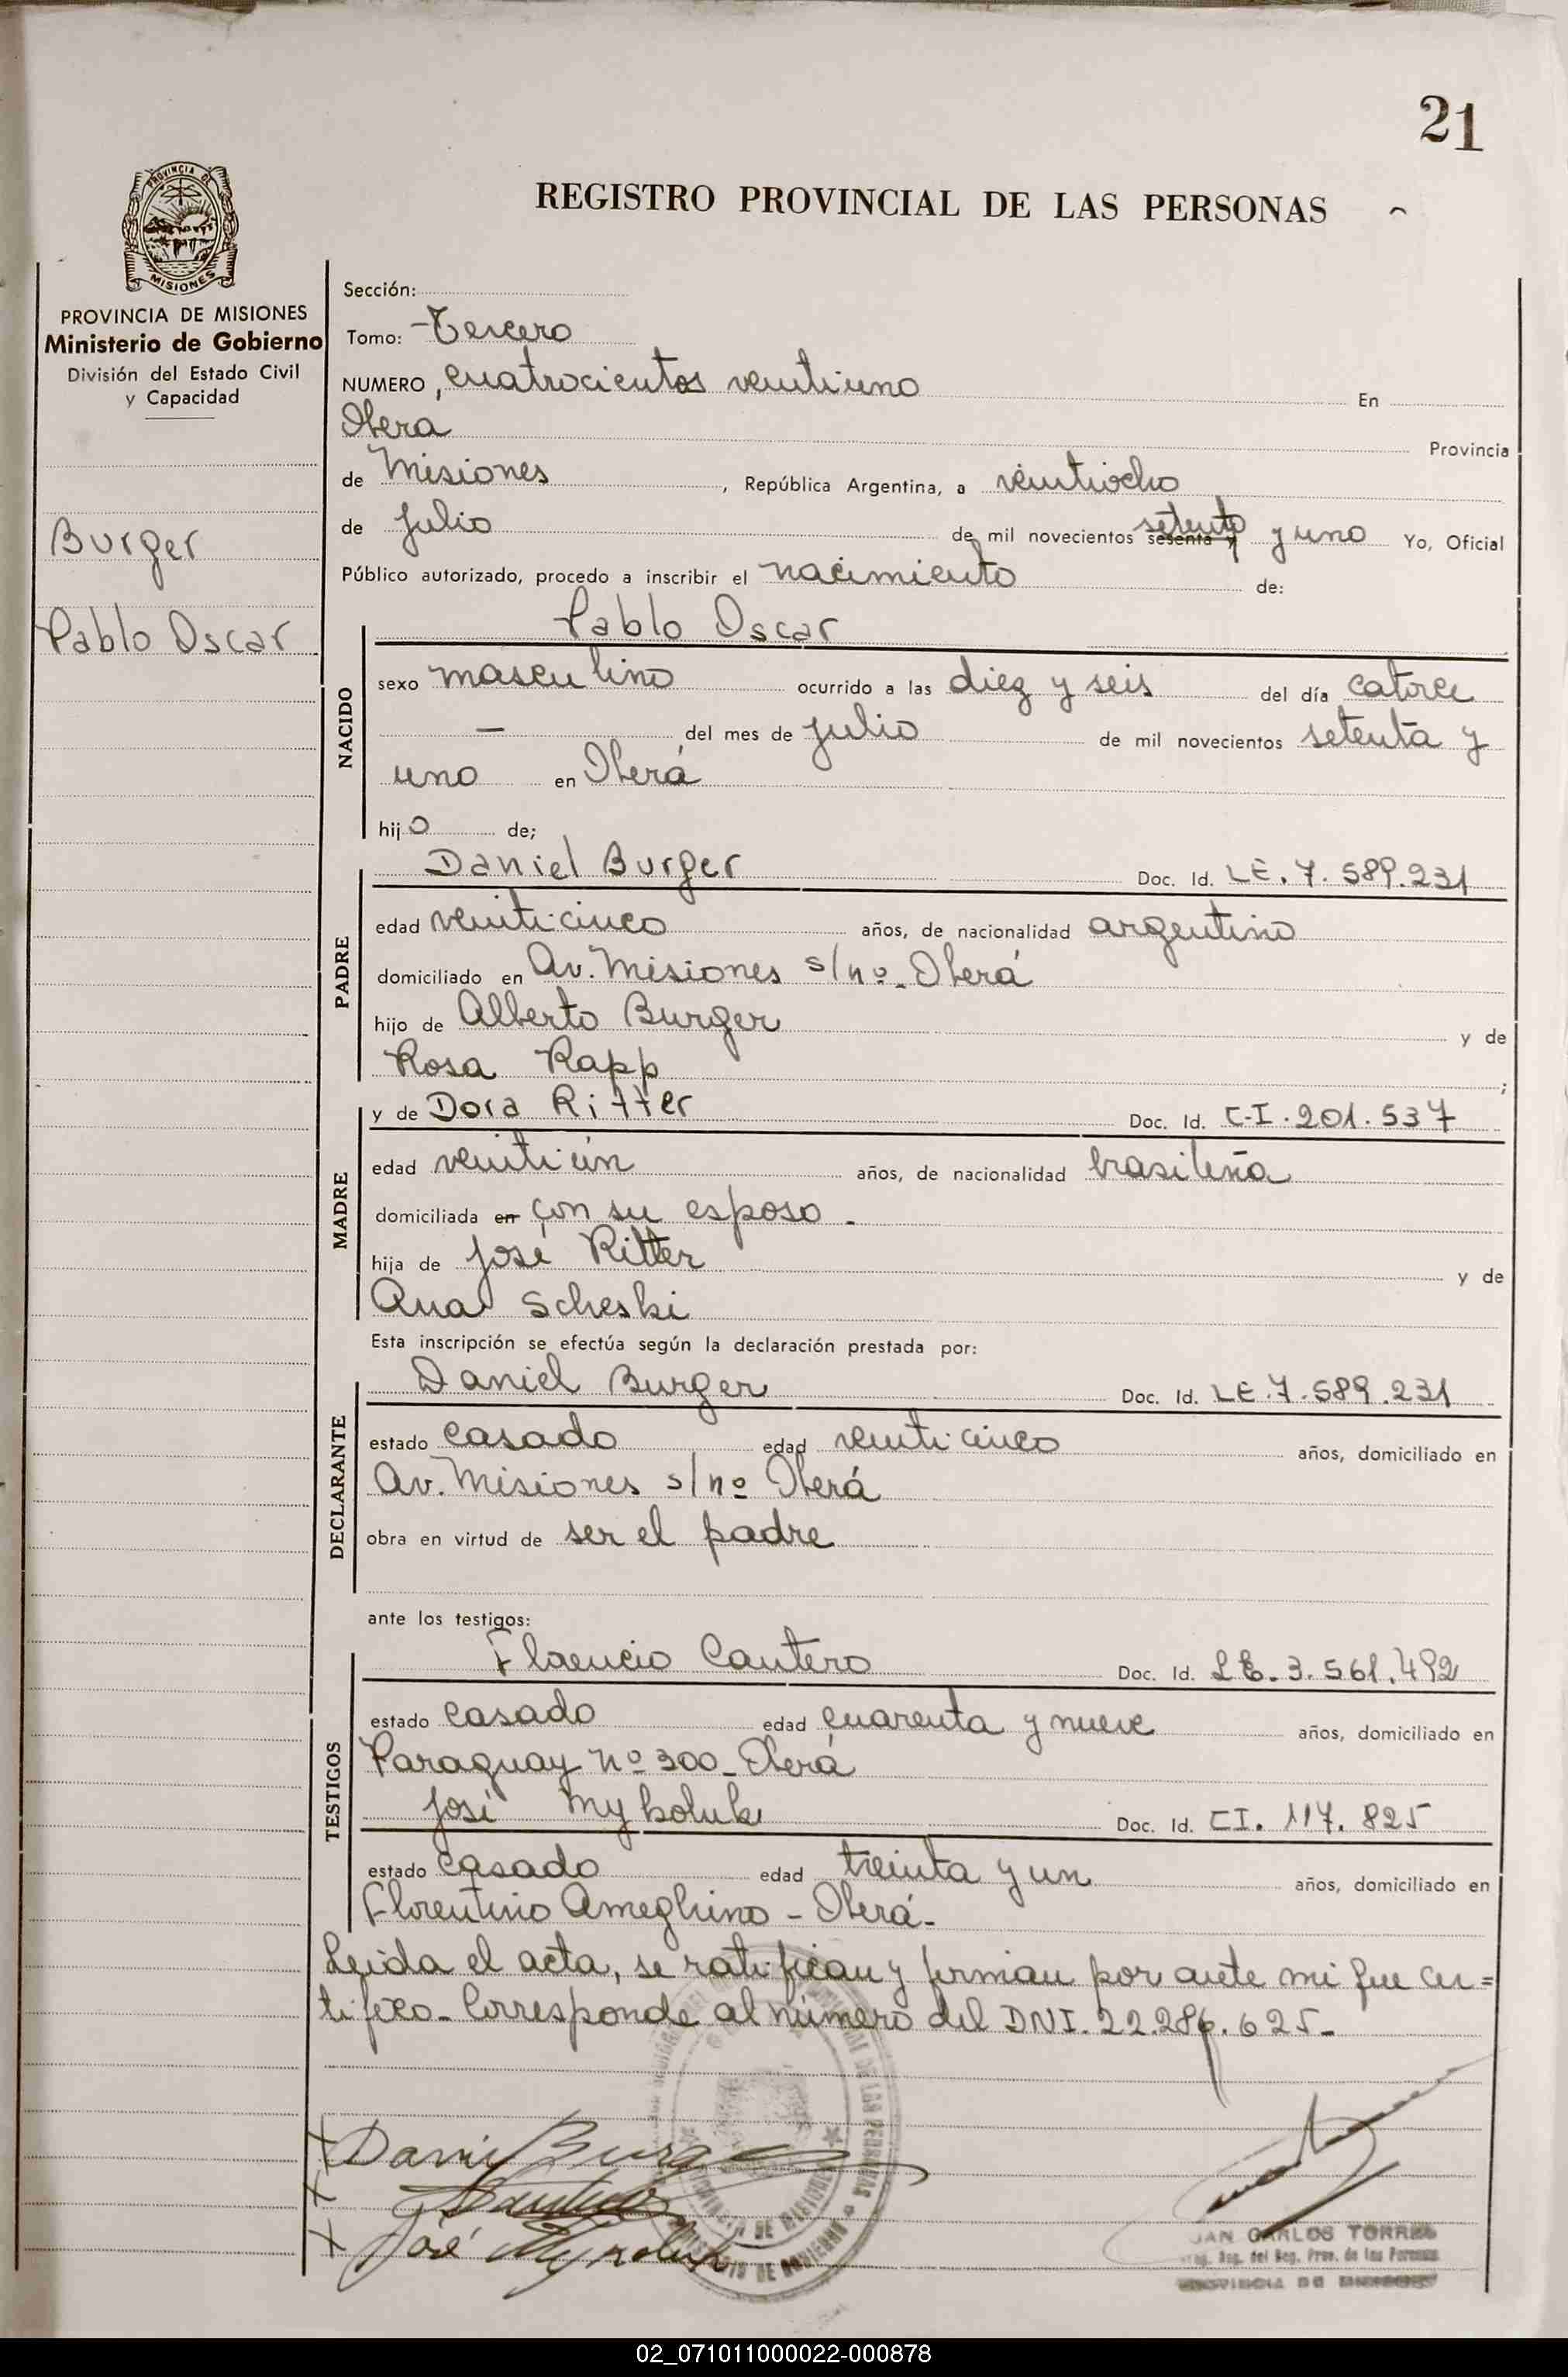 21
REGISTRO PROVINCIAL DE LAS PERSONAS
PROVINCIA DE
MISIONES
PROVINCIA DE MISIONES
Ministerio de Gobierno
División del Estado Civil
y Capacidad
Burger
Pablo Oscar
Sección:
Tomo: Tercero
NUMERO, cuatrocientos veintiuno En
Oberá Provincia
de Misiones, República Argentina, a veintiocho
de julio de mil novecientos sesenta y setenta y uno Yo, Oficial
Público autorizado, procedo a inscribir el nacimiento de:
NACIDO
Pablo Oscar
sexo masculino ocurrido a las diez y seis del día catorce
— del mes de julio de mil novecientos setenta y
uno en Oberá
hijo de;
PADRE
Daniel Burger Doc. Id. LE. 7. 589.231
edad veinticinco años, de nacionalidad argentino
domiciliado en Av. Misiones s/nº. Oberá
hijo de Alberto Burger y de
Rosa Rapp ;
MADRE
y de Dora Ritter Doc. Id. C-I. 201. 537
edad veintiún años, de nacionalidad brasileña
domiciliada en con su esposo.
hija de José Ritter y de
Ana Scheski
Esta inscripción se efectúa según la declaración prestada por:
DECLARANTE
Daniel Burger Doc. Id. LE.7.589.231
estado casado edad veinticinco años, domiciliado en
Av. Misiones s/nº Oberá
obra en virtud de ser el padre
ante los testigos:
TESTIGOS
Florencio Cantero Doc. Id. LE. 3. 561. 492
estado casado edad cuarenta y nueve años, domiciliado en
Paraguay nº 300 - Oberá
José Mykoluk Doc. Id. CI. 117. 825
estado casado edad treinta y un años, domiciliado en
Florentino Ameghino - Oberá.
Leida el acta, se ratifican y firman por ante mi que cer=
tifico. Corresponde al número del DNI. 22.286.625-
X Daniel Burger
X
X José Mykoluk
JUAN CARLOS TORRES
del Reg. Prov. de las Personas
PROVINCIA DE MISIONES
02_071011000022-000878